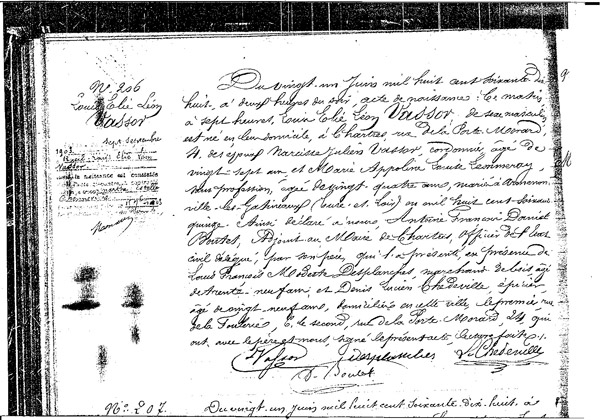 N° 206
Louis Elie Léon
Vassor
Du vingt-un Juin mil huit cent soixante dix
huit, à deux heures du soir, acte de naissance: Ce matin
à sept heures, Louis Elie Léon Vassor, de sexe masculin
est né en leur domicile, à Chartres, rue de la Porte Morard,
4, des époux Narcisse Julien Vassor, cordonnier, âgé de
vingt sept ans et Marie Appoline Louise Lemmeray,
sans profession, âgée de vingt quatre ans, mariés à
ville-les-Gatineaux (Eure et Loir) en mil huit cent soixante
quinze. Ainsi déclaré à nous, Antoine François Daniel
Boutet, Adjoint au Maire de Chartres, officier de l'Etat
civil délégué, par son père, qui l'a présenté, en présence de
Louis François Modeste Desplanches, marchand de bois âgé
de trente-neuf ans, et Denis Lucien Chédeville, épicier,
âgé de vingt-neuf ans, domiciliés en cette ville, le premier rue
de la Foulerie, 6, le second, rue de la Porte Morard, 24, qui
ont, avec le père et nous, signé le présent acte lecture faite.
Vassor Desplanches Chédeville
D. Boutet
N° 207.
Du vingt un Juin mil huit cent soixante-dix-huit, à